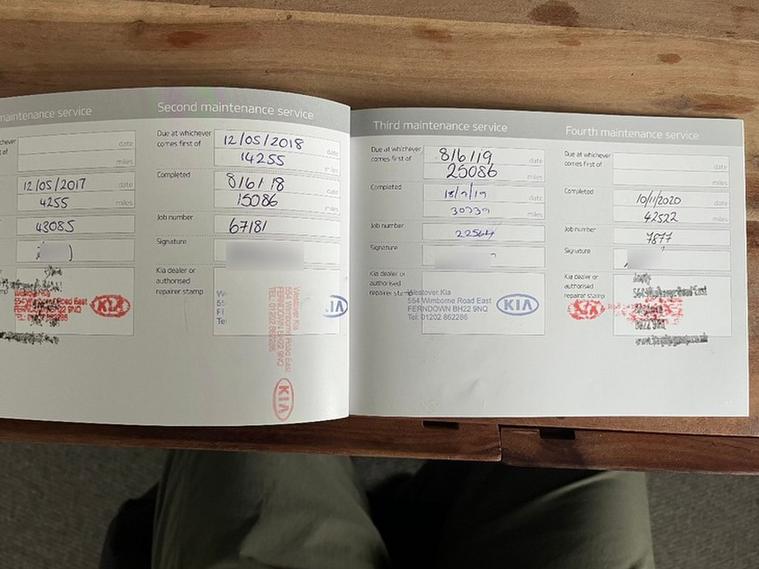 maintenance service
date
miles
12/05/2017 date
4255 miles
43085
KIA
Second maintenance service
Due at whichever 12/05/2018 date
comes first of 14255 miles
Completed 8/6/18 date
15086 miles
Job number 67181
Signature
Kia dealer or
authorised
repairer stamp
Westover Kia
554 Wimborne Road East
FERNDOWN BH22 9NQ
TEL: 01202 862286
KIA
Third maintenance service
Due at whichever 8/6/19 date
comes first of 25086 miles
Completed date
miles
Job number
Signature
Kia dealer or
authorised
repairer stamp
Westover Kia
554 Wimborne Road East
FERNDOWN BH22 9NQ
Tel: 01202 862286
KIA
Fourth maintenance service
Due at whichever date
comes first of miles
Completed 10/11/2020 date
42522 miles
Job number 7877
Signature
Kia dealer or
authorised
repairer stamp
KIA